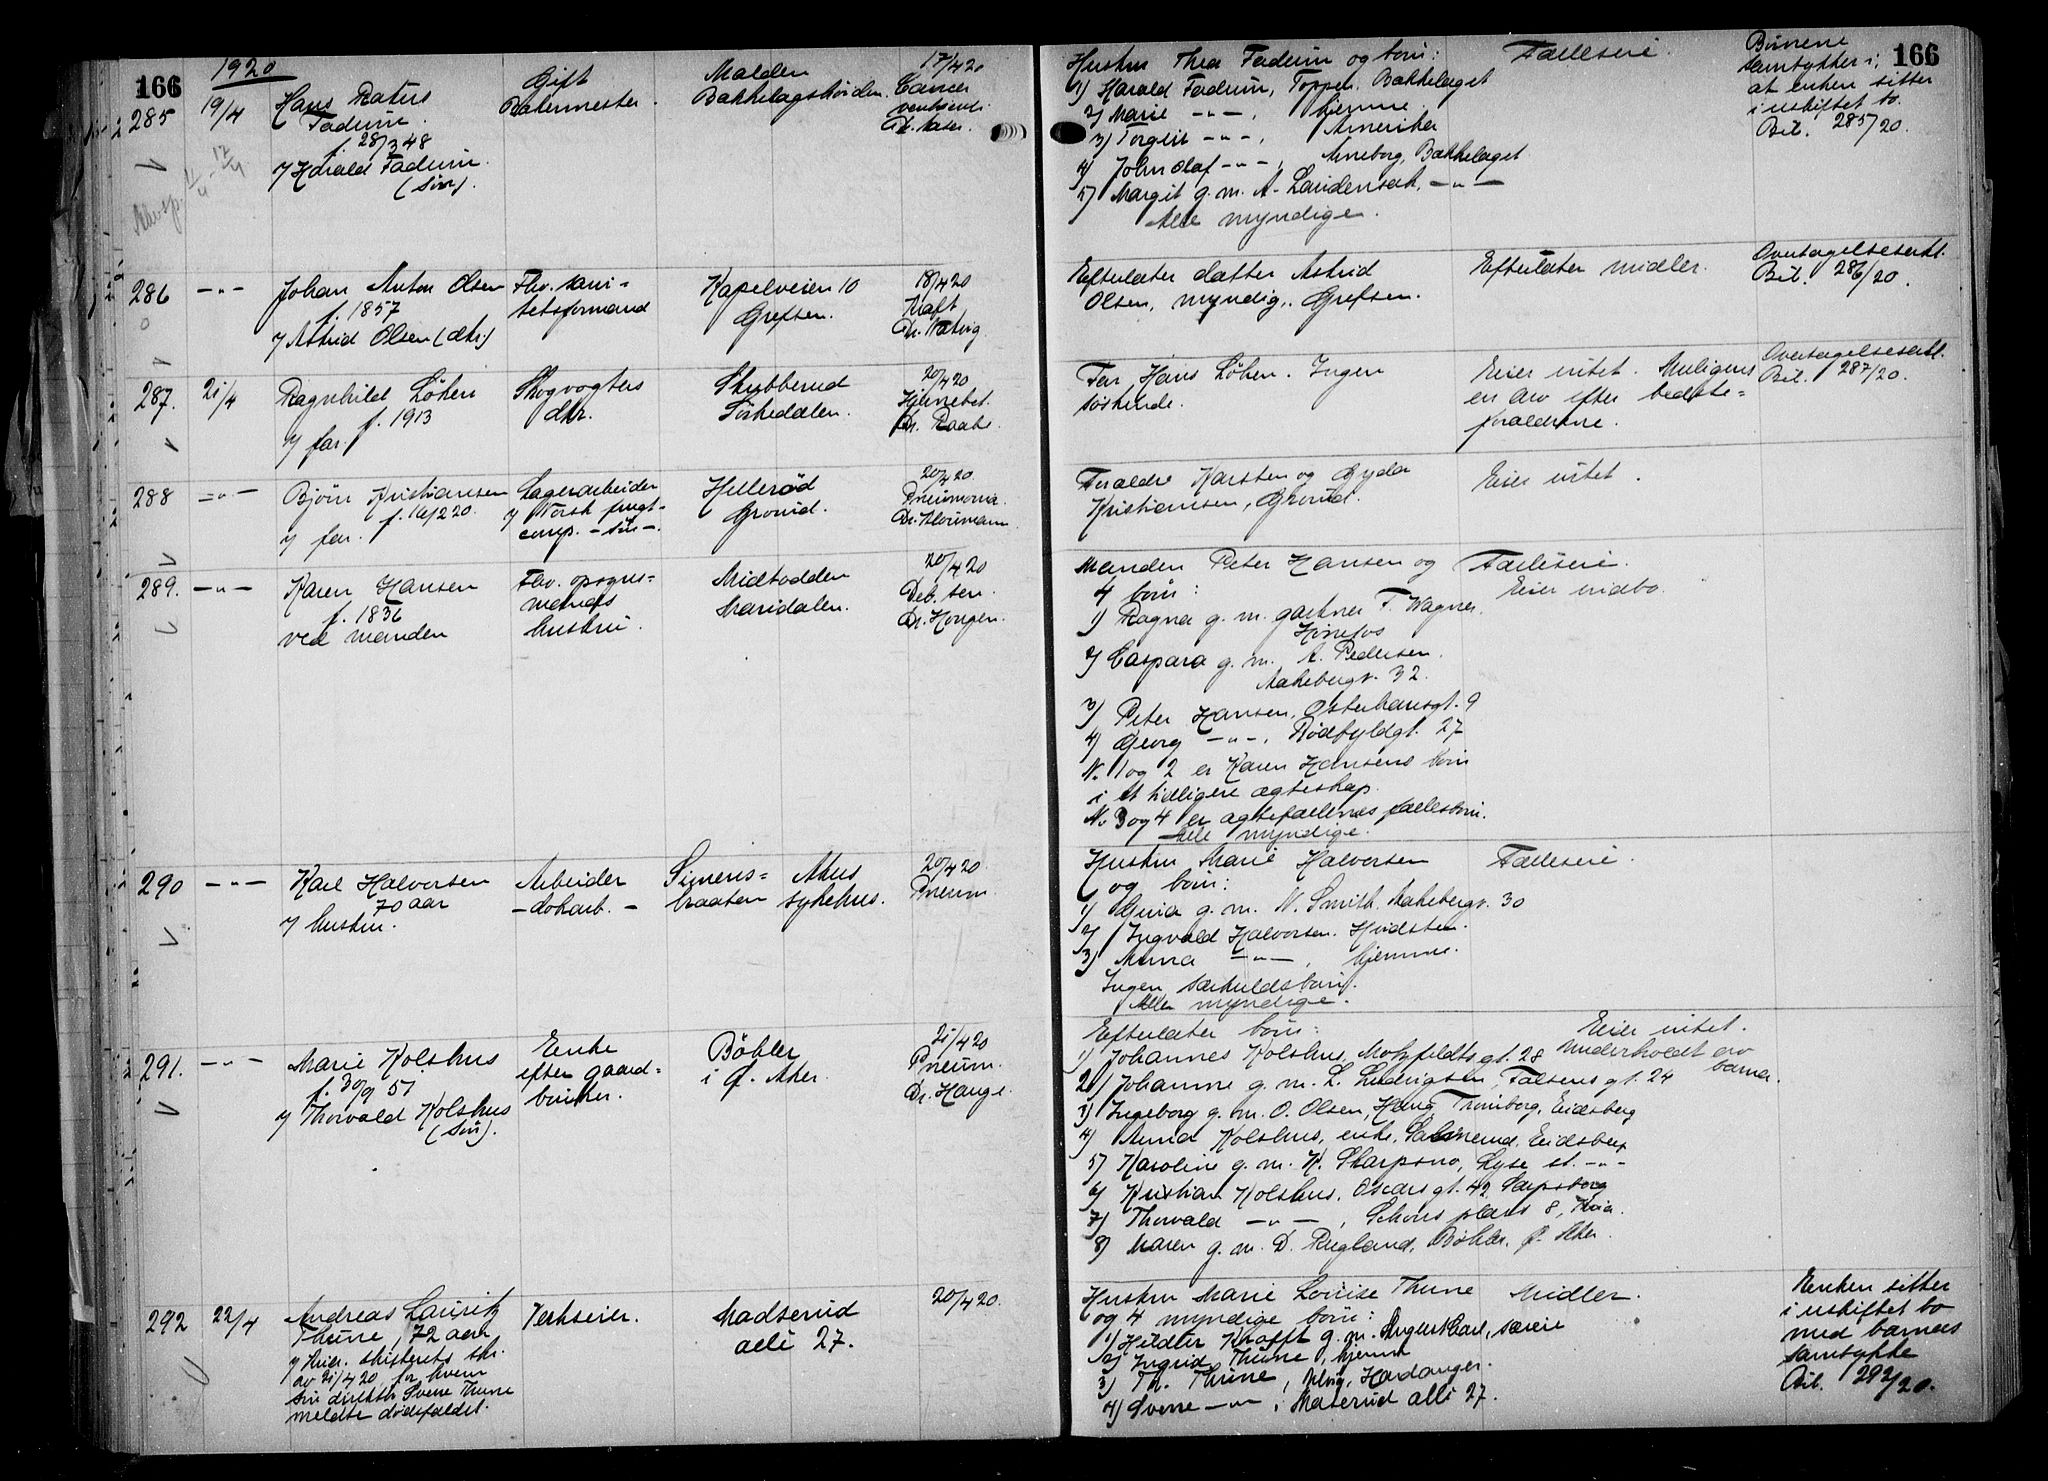 166
1920
285
19/4
Hans
Fadum
f. 28/3 48
v/ Harald Fadum
(søn).
Gift
Malden
Bækkelagshøiden.
17/4 20
Cancer
ventriculi
Hustru Thea Fadum og børn:
1) Harald Fadum, Toppen, Bækkelaget
2) Marie -"-, hjemme.
3) Torgeir -"-, Amerika
4) John Olaf -"-, Arneborg, Bækkelaget
5) Margit g. m. A. -"-
Alle myndige.
Fælleseie.
166
Børnene
samtykker i,
at enken sitter
i uskiftet bo.
Bil. 285/20.
286
-"-
Johan Anton Olsen
f. 1857
v/ Astrid Olsen (dtr.)
Fhv. sani=
tetsformand
Kapelveien 10
Grefsen.
18/4 20
Kræft
Dr. Natvig.
Efterlater datter Astrid
Olsen, myndig, Grefsen.
Efterlater midler.
Overtagelseserkl.
Bil. 286/20.
287.
21/4
Ragnhild Løken
f. 1913
v/ far.
Skogvogters
dtr.
Skubberud
Sørkedalen.
20/4 20
Hjernebet.
Dr. Raabe.
Far Hans Løken. Ingen
søskende.
Eier intet. Muligens
en arv efter bedste=
forældrene.
Overtagelseserkl.
Bil. 287/20.
288
-"-
Bjørn Kristiansen
f. 16/2 20.
v/ far.
Lagerarbeider
v/ Norsk frugt-
comp. - søn -.
Hillerød
Grorud.
20/4 20
Pneumonia.
Forældre Karsten og Gyda
Kristiansen, Grorud.
Eier intet.
289.
-"-
Karen Hansen
f. 1836
ved manden
Fhv. opsyns=
mands
hustru.
Midtodden
Maridalen.
20/4 20
Deb. sen.
Dr. Hougen.
Manden Peter Hansen og
4 børn:
1) Ragna g. m. gartner F. Wagner.
Hønefos
2) Caspara g. m. A. Pedersen.
Aakebergv. 32.
3) Peter Hansen, Osterhausgt. 9
4) Georg -"-, Rødfyldgt. 27
N. 1 og 2 er Karen Hansens børn
i et tidligere ægteskap.
No 3 og 4 er ægtefællenes fællesbørn.
Alle myndige.
Fælleseie.
Eier indbo.
290
-"-
Karl Halvorsen
70 aar
v/ hustru.
Arbeider
- dokarb. -
Simens=
braaten
Akers
sykehus.
20/4 20
Pneum.
Hustru Marie Halvorsen
og børn:
1) g. m. N. Smith, Aakebergv. 30
2) Ingvald Halvorsen. Hvidsten.
3) Anna -"-, hjemme.
Ingen særkuldsbørn.
Alle myndige.
Fælleseie.
291.
-"-
Marie Kolshus
f. 30/9 57
v/ Thorvald Kolshus
(søn).
Enke
efter gaard=
bruker.
Bøhler
i Ø. Aker.
21/4 20
Pneum.
Dr. Hauge.
Efterlater børn:
1) Johannes Kolshus, Motzfeldtsgt. 28
2) Johanne g. m. L. Ludvigsen, Falsensgt. 24
3) Ingeborg g. m. O. Olsen, Haug, Trømborg, Eidsberg
4) Anna Kolshus, enke, Eidsberg
5) Karoline g. m. K. Skarpsno, Lyse st. -"-
6) Kristian Kolshus, Oscarsgt. 42, Sarpsborg
7) Thorvald -"-, Schous plass 8, Kria.
8) Maren g. m. D. Rugland, Bøhler, Ø. Aker.
Eier intet.
Underholdt av
barna.
292
22/4
Andreas Lauritz
Thune, 72 aar
v/ Kria. skifterets skr.
av 21/4 20, for hvem
søn direktør Sverre Thune
meldte dødsfaldet.
Verkseier.
Madserud
allé 27.
20/4 20.
Hustru Marie Louise Thune
og 4 myndige børn:
1) Hildur Krafft g. m. særeie
2) Ingrid Thune, hjemme
3) Th. Thune, Ulvik, Hardanger.
4) Sverre -"-, Madserud allé 27.
Midler.
Enken sitter
i uskiftet bo
med barnas
samtykke
Bil. 292/20.